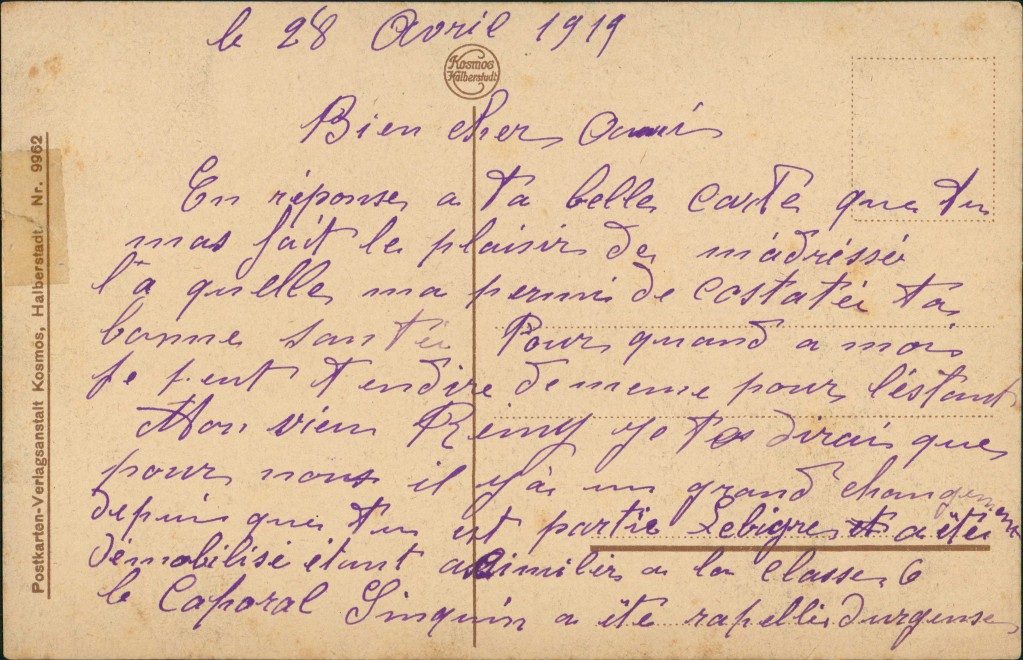 le 28 Avril 1919
Kosmos
Halberstadt
Bien cher Ami
En réponse a ta belle carte que tu
mas fait le plaisir de madréssé
l'a quelle ma permi de costatée ta
bonne santée Pour quand a moi
je peut t'endire de meme pour l'éstant
Mon vieu Remy je te dirais que
pour nous il y'a un grand changement
depuis que tu est partie Lebigre a étée
démobilisé étant assimilér a la classe 6
le Caporal Sinquin a ëté rapellé durgense
Postkarten-Verlagsanstalt Kosmos, Halberstadt. Nr. 9962